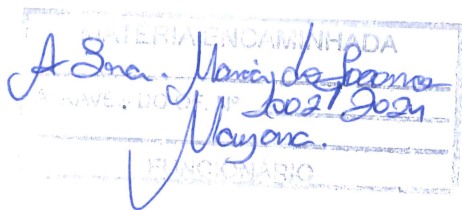 MATÉRIA ENCAMINHADA
A Sra. Marcia de
ATRAVÉS DO OF. Nº 1002/2021
Mayara.
FUNCIONÁRIO